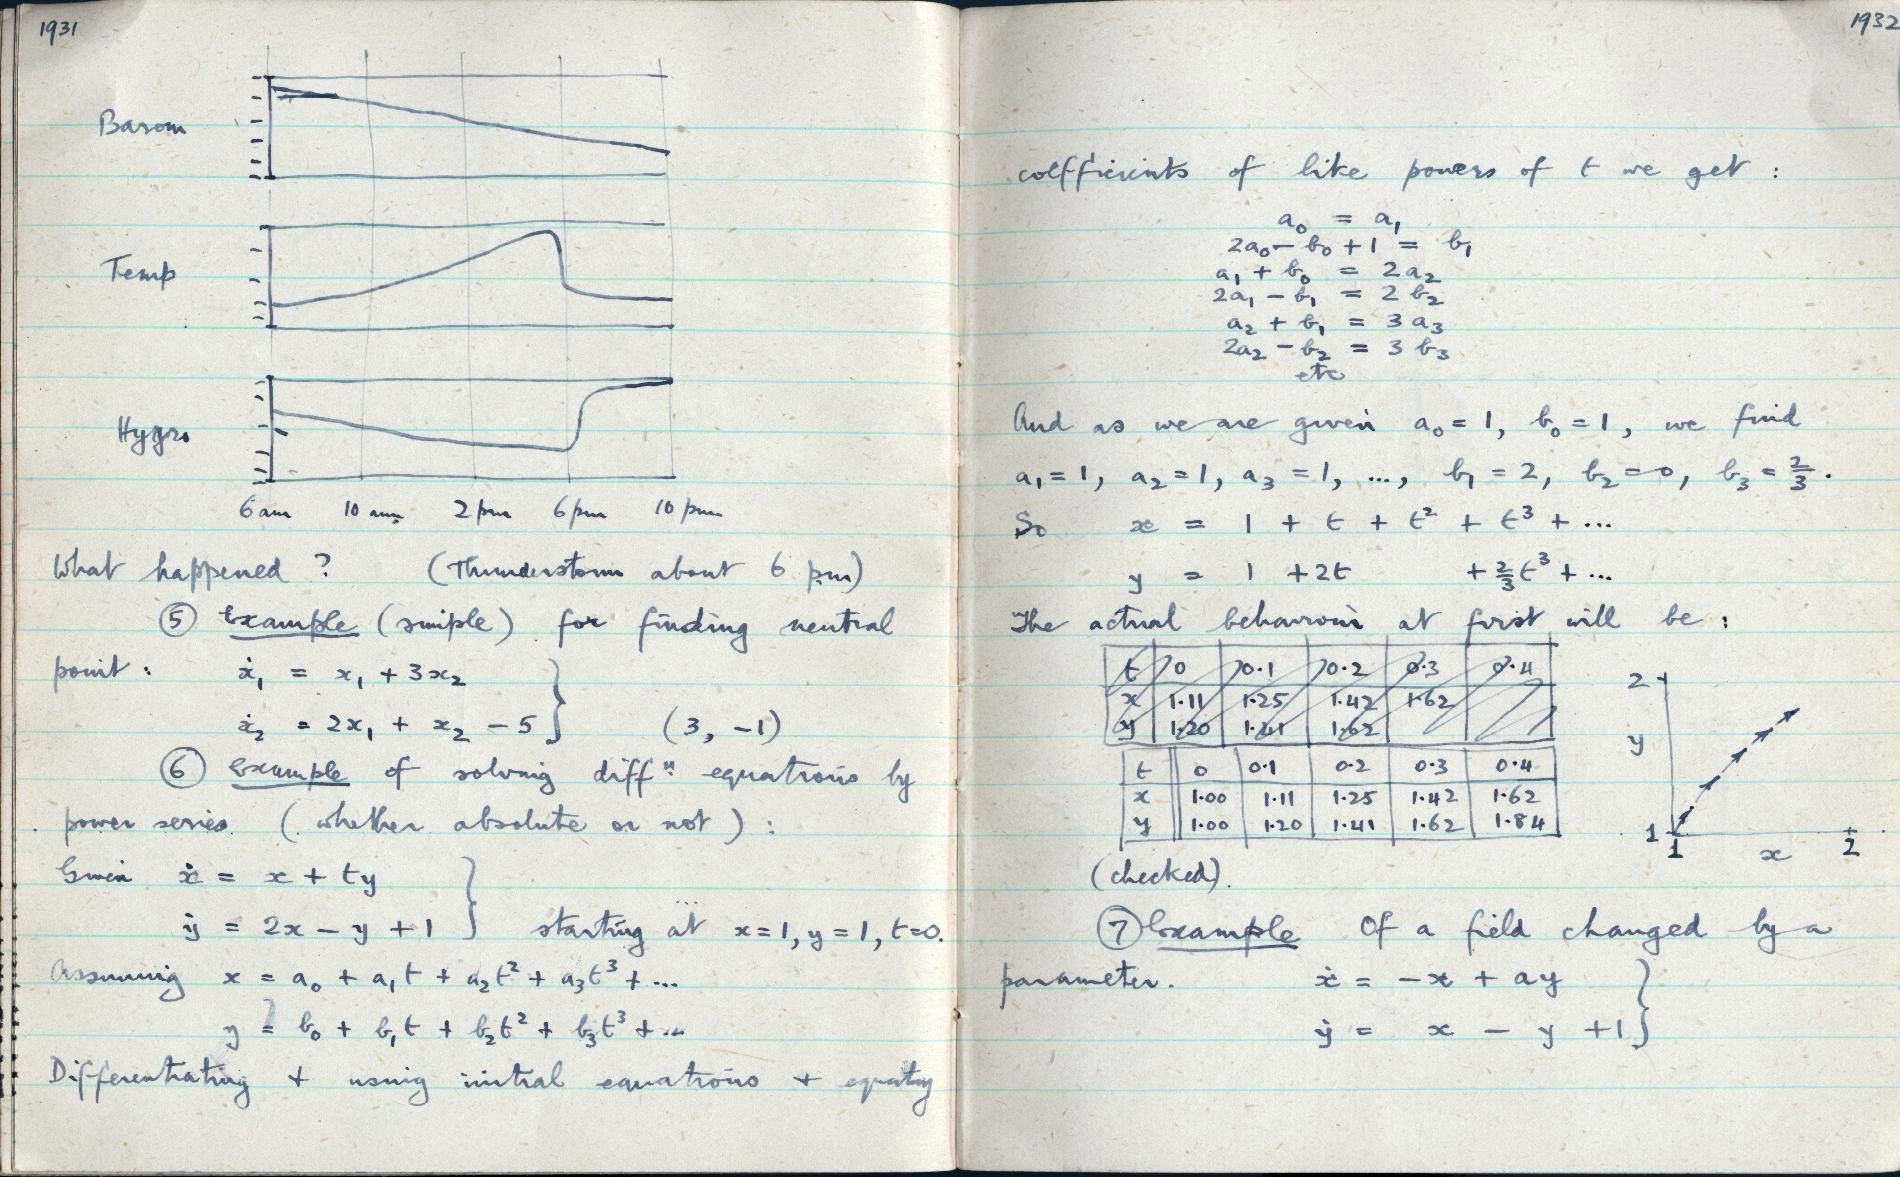 1931
Barom
Temp
Hygro
6 am 10 am 2 pm 6 pm 10 pm
What happened ? (Thunderstorm about 6 pm)
⑤ Example (simple) for finding neutral
point : ẋ₁ = x₁ + 3x₂
ẋ₂ = 2x₁ + x₂ − 5 } (3, −1)
⑥ Example of solving diffⁿ equations by
power series (whether absolute or not) :
Given ẋ = x + ty
ẏ = 2x − y + 1 } starting at x=1, y=1, t=0.
Assuming x = a₀ + a₁t + a₂t² + a₃t³ + ...
y = b₀ + b₁t + b₂t² + b₃t³ + ...
Differentiating + using initial equations + equating
1932
coefficients of like powers of t we get :
a₀ = a₁
2a₀ − b₀ + 1 = b₁
a₁ + b₀ = 2a₂
2a₁ − b₁ = 2b₂
a₂ + b₁ = 3a₃
2a₂ − b₂ = 3b₃
etc
And as we are given a₀ = 1, b₀ = 1, we find
a₁ = 1, a₂ = 1, a₃ = 1, ..., b₁ = 2, b₂ = 0, b₃ = 2/3.
So x = 1 + t + t² + t³ + ...
y = 1 + 2t + 2/3 t³ + ...
The actual behaviour at first will be :
t 0 0·1 0·2 0·3 0·4
x 1·11 1·25 1·42 1·62
y 1·20 1·41 1·62
t 0 0·1 0·2 0·3 0·4
x 1·00 1·11 1·25 1·42 1·62
y 1·00 1·20 1·41 1·62 1·84
2
y
1
1 x 2
(checked).
⑦ Example Of a field changed by a
parameter. ẋ = −x + ay
ẏ = x − y + 1 }